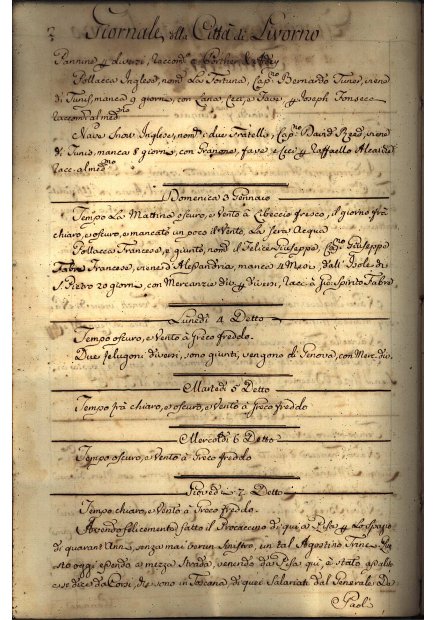 Giornale della Città di Livorno
Pannine, e diversi, Raccomo a Porcher, e
Pollacca Inglese, nom La Fortuna, Capno Bernardo Tunes, viene
di Tunis, manca 9 giorni, con Lana, Ceci, e Fave, Joseph Fonseca
Raccom al medmo
Nave Snow Inglese, nom: due Fratelli, Capno David Reed, viene
di Tunis, manca 8 giorni, con Granone, fave e Ceci Raffaello
Racc. al medmo
Domenica 3 Gennaio
Tempo La Mattina oscuro, e Vento à Libeccio fresco, il giorno frà
chiaro, e oscuro, e mancato un poco il Vento, La Sera Acqua
Pollacca Francese, è giunto, nom il Felice Giuseppe, Capno Giuseppe
Fabre Francese, viene d'Alessandria, manca 4 Mesi, dall'Isole di
S. Pietro 20 giorni, con Mercanzie div. Diversi, Racc. à Gio: Spirito Fabre
Lunedì 4 Detto
Tempo oscuro, e Vento à Greco freddo.
Due felugoni diversi, sono giunti, vengono di Genova, con Merc. div.
Martedì 5 Detto
Tempo frà chiaro, e oscuro, e Vento à Greco freddo
Mercoldì 6 Detto
Tempo oscuro, e Vento à Greco freddo
Giovedì 7 Detto
Tempo chiaro, e Vento à Greco freddo.
Avendo felicemente fatto il Procaccio di qui a Pisa Lo Spazio
di quarant'Anni, senza mai verun Sinistro, un tal Agostino
oggi essendo a mezza Strada, venendo da Pisa qui, è stato assalito
e se dice da Corsi, che sono in Toscana, di quei Salariati dal Generale De
Paoli